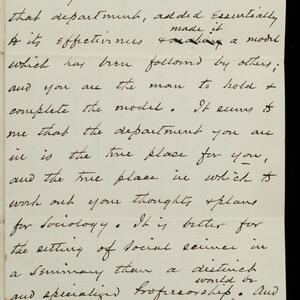 that department, added essentially
to its effectiveness & made it a model
which has been followed by others;
and you are the man to hold &
complete the model. It seems to
me that the department you are
in is the true place for you,
and the true place in which to
work out your thoughts & plans
for Sociology. It is better for
the setting of Social science in
a Seminary than a distinct
and specialized Professorship would be. And